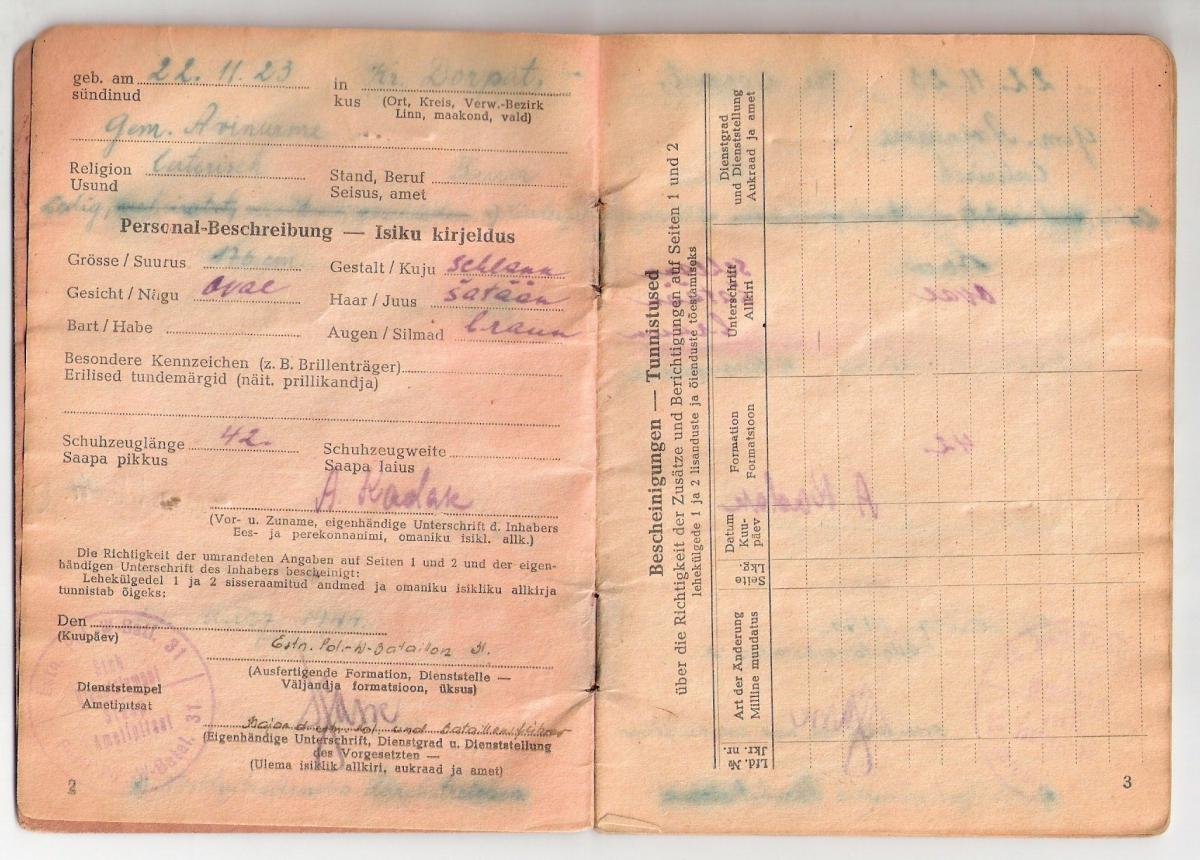 geb. am 22. 11. 23 in Kr. Dorpat.
sündinud kus (Ort, Kreis, Verw.-Bezirk
Linn, maakond, vald)
Gem. Avinurme
Religion Luterisch Stand, Beruf
Usund Seisus, amet
Ledig,
Personal-Beschreibung — Isiku kirjeldus
Grösse / Suurus 176 cm Gestalt / Kuju schlann
Gesicht / Nägu Oval Haar / Juus šatään
Bart / Habe Augen / Silmad braun
Besondere Kennzeichen (z. B. Brillenträger)
Erilised tundemärgid (näit. prillikandja)
Schuhzeuglänge 42. Schuhzeugweite
Saapa pikkus Saapa laius
A Kadak
(Vor- u. Zuname, eigenhändige Unterschrift d. Inhabers
Ees- ja perekonnanimi, omaniku isikl. allk.)
Die Richtigkeit der umrandeten Angaben auf Seiten 1 und 2 und der eigen-
händigen Unterschrift des Inhabers bescheinigt:
Lehekülgedel 1 ja 2 sisseraamitud andmed ja omaniku isikliku allkirja
tunnistab õigeks:
Den März 1944.
(Kuupäev)
Estn. Pol.-W-Bataillon 31.
(Ausfertigende Formation, Dienststelle —
Väljandja formatsioon, üksus)
Dienststempel
Ametipitsat
Major d. estn. Pol und Bataillonsführer
(Eigenhändige Unterschrift, Dienstgrad u. Dienststellung
des Vorgesetzten —
(Ulema isiklik allkiri, aukraad ja amet)
2
Bescheinigungen — Tunnistused
über die Richtigkeit der Zusätze und Berichtigungen auf Seiten 1 und 2
lehekülgede 1 ja 2 lisanduste ja õienduste tõestamiseks
Lfd. №
Jkr. nr.
Art der Änderung
Milline muudatus
Seite
Lkg.
Datum
Kuu-
päev
Formation
Formatsioon
Unterschrift
Allkiri
Dienstgrad
und Dienststellung
Aukraad ja amet
3